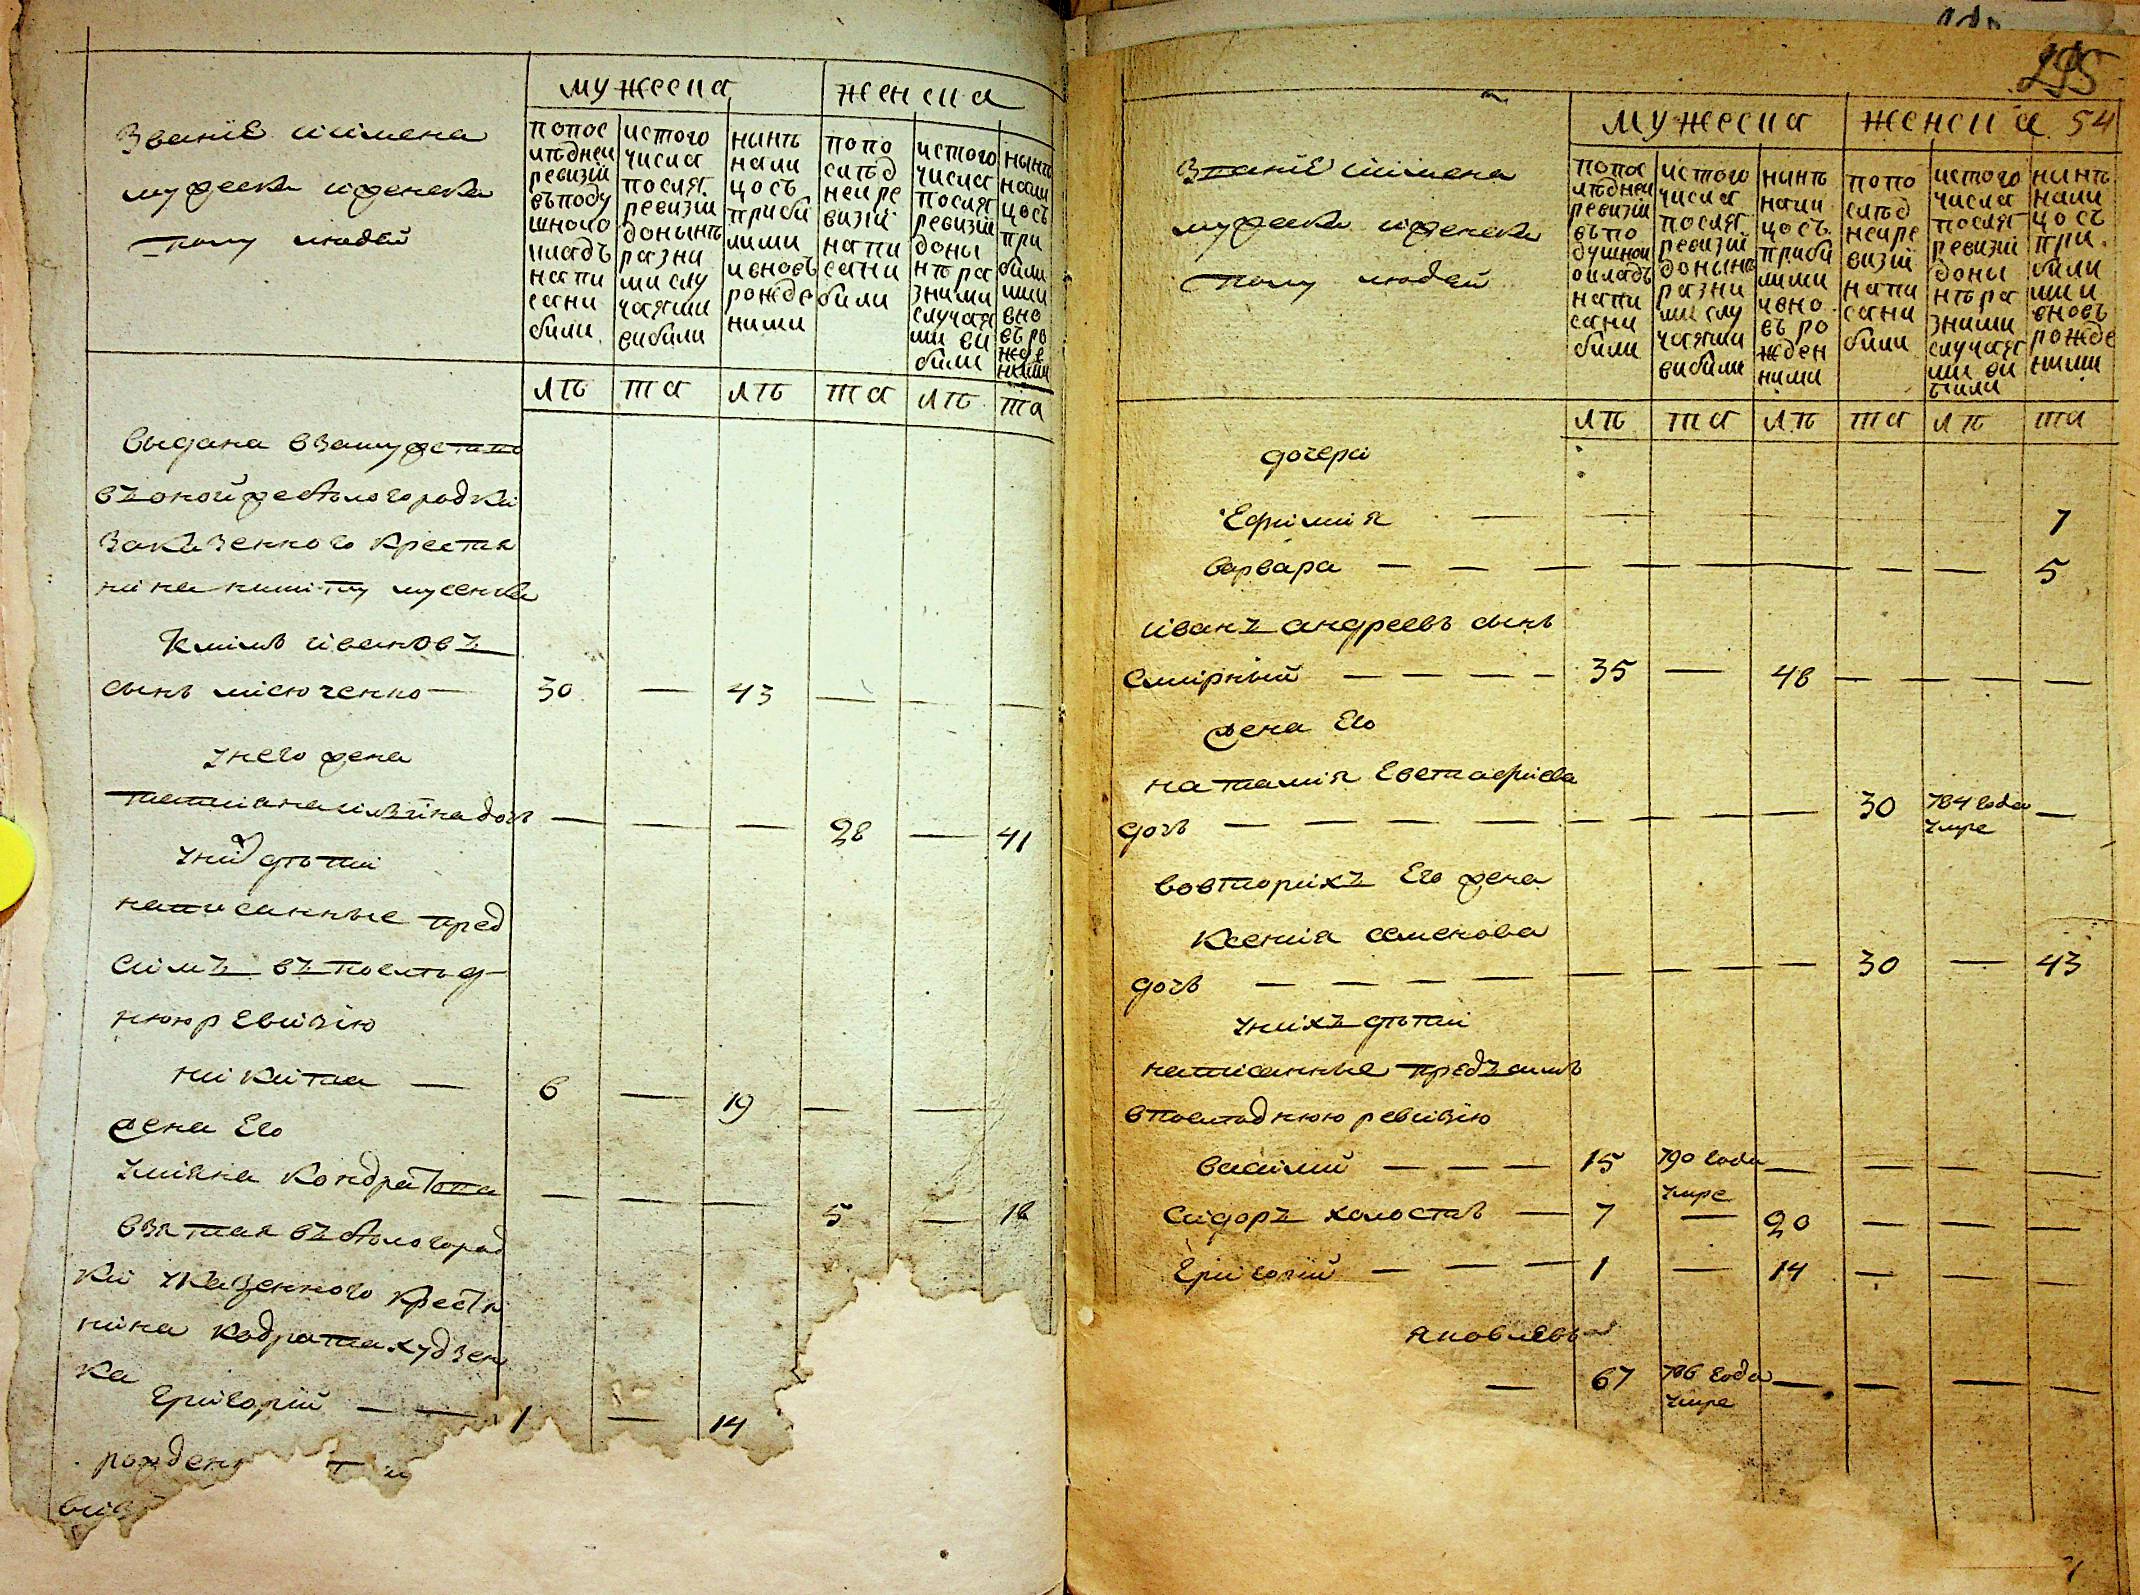 мужеска
женска
Званіе иимена
мужеска иженска
полу людей
попос
лѣдней
ревизіи
въподу
шного
кладъ
напи
сани
били
истого
числа
послѣ
ревизіи
донынѣ
разни
ми слу
чаями
вибили
нинѣ
нали
цосъ
приби
лими
ивновъ
рожде
ними
попо
слѣд
неире
визіи
напи
сани
били
истого
числа
послѣ
ревизіи
дони
нѣра
зними
случая
ми ви
били
нынѣ
нали
цосъ
при
били
ими
вно
въро
жде
ними
лѣ та лѣ та лѣ та
выдана взамужство
въоной же бѣлогородки
заказенного крестья
нина никиту мусенка
Климъ ивановъ
сынъ місюченко — 30 — 43 — — —
унего жена
татиана илѣина дочъ — — — 28 — 41
уних дѣти
написанные пред
симъ въпослѣд
нююревизію
никита — 6 — 19 — —
жена Его
улияна Кондратова — — — 5 — 18
взятая въ бѣлогород
ки указенного крестя
нина кодрата худзен
ка
Григорій — — 1 — 14
рожден
295
54
мужеска
женска
Званіе иимена
мужеска иженска
полу людей
попос
лѣдней
ревизіи
въпо
душной
окладъ
напи
сани
били
истого
числа
послѣ
ревизіи
донынѣ
разни
ми слу
чаями
вибили
нинѣ
нали
цосъ
приби
лими
ивно
въ ро
жден
ними
попо
слѣд
неире
визіи
напи
сани
били
истого
числа
послѣ
ревизіи
дони
нѣра
зними
случая
ми ви
били
нинѣ
нали
цосъ
при
били
ими
вновъ
рожде
ними
лѣ та лѣ та лѣ та
дочери
Ефимия — — — — — — 7
варвара — — — — — — — — 5
иванъ андреевъ сынъ
смирный — — — — 35 — 48 — — —
жена Его
наталия Евстафиева
дочъ — — — — — — — 30 784 года умре —
вовторихъ Его жена
Ксения семенова
дочъ — — — — — — — 30 — 43
унихъ дѣти
написанные предъсимъ
впослѣднюю ревизію
василий — — — 15 790 года умре — — — —
сидоръ холостъ — 7 — 20 — — —
Григорий — — — 1 — 14 — — —
яковлевъ
— 67 786 года умре — — — —